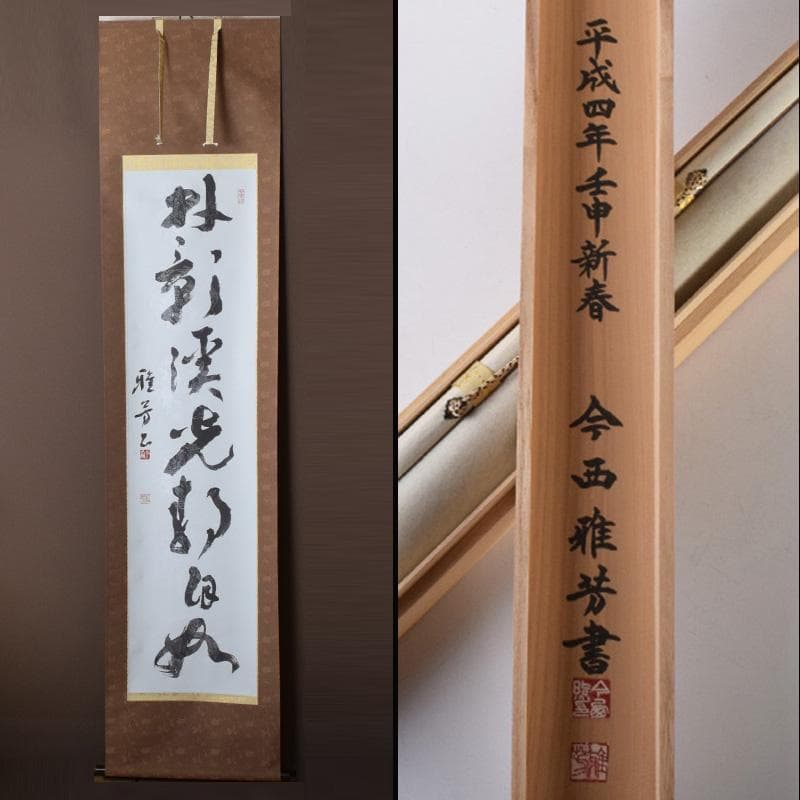 林影溪光静自如
雅芳
平成四年壬申新春　今西雅芳書